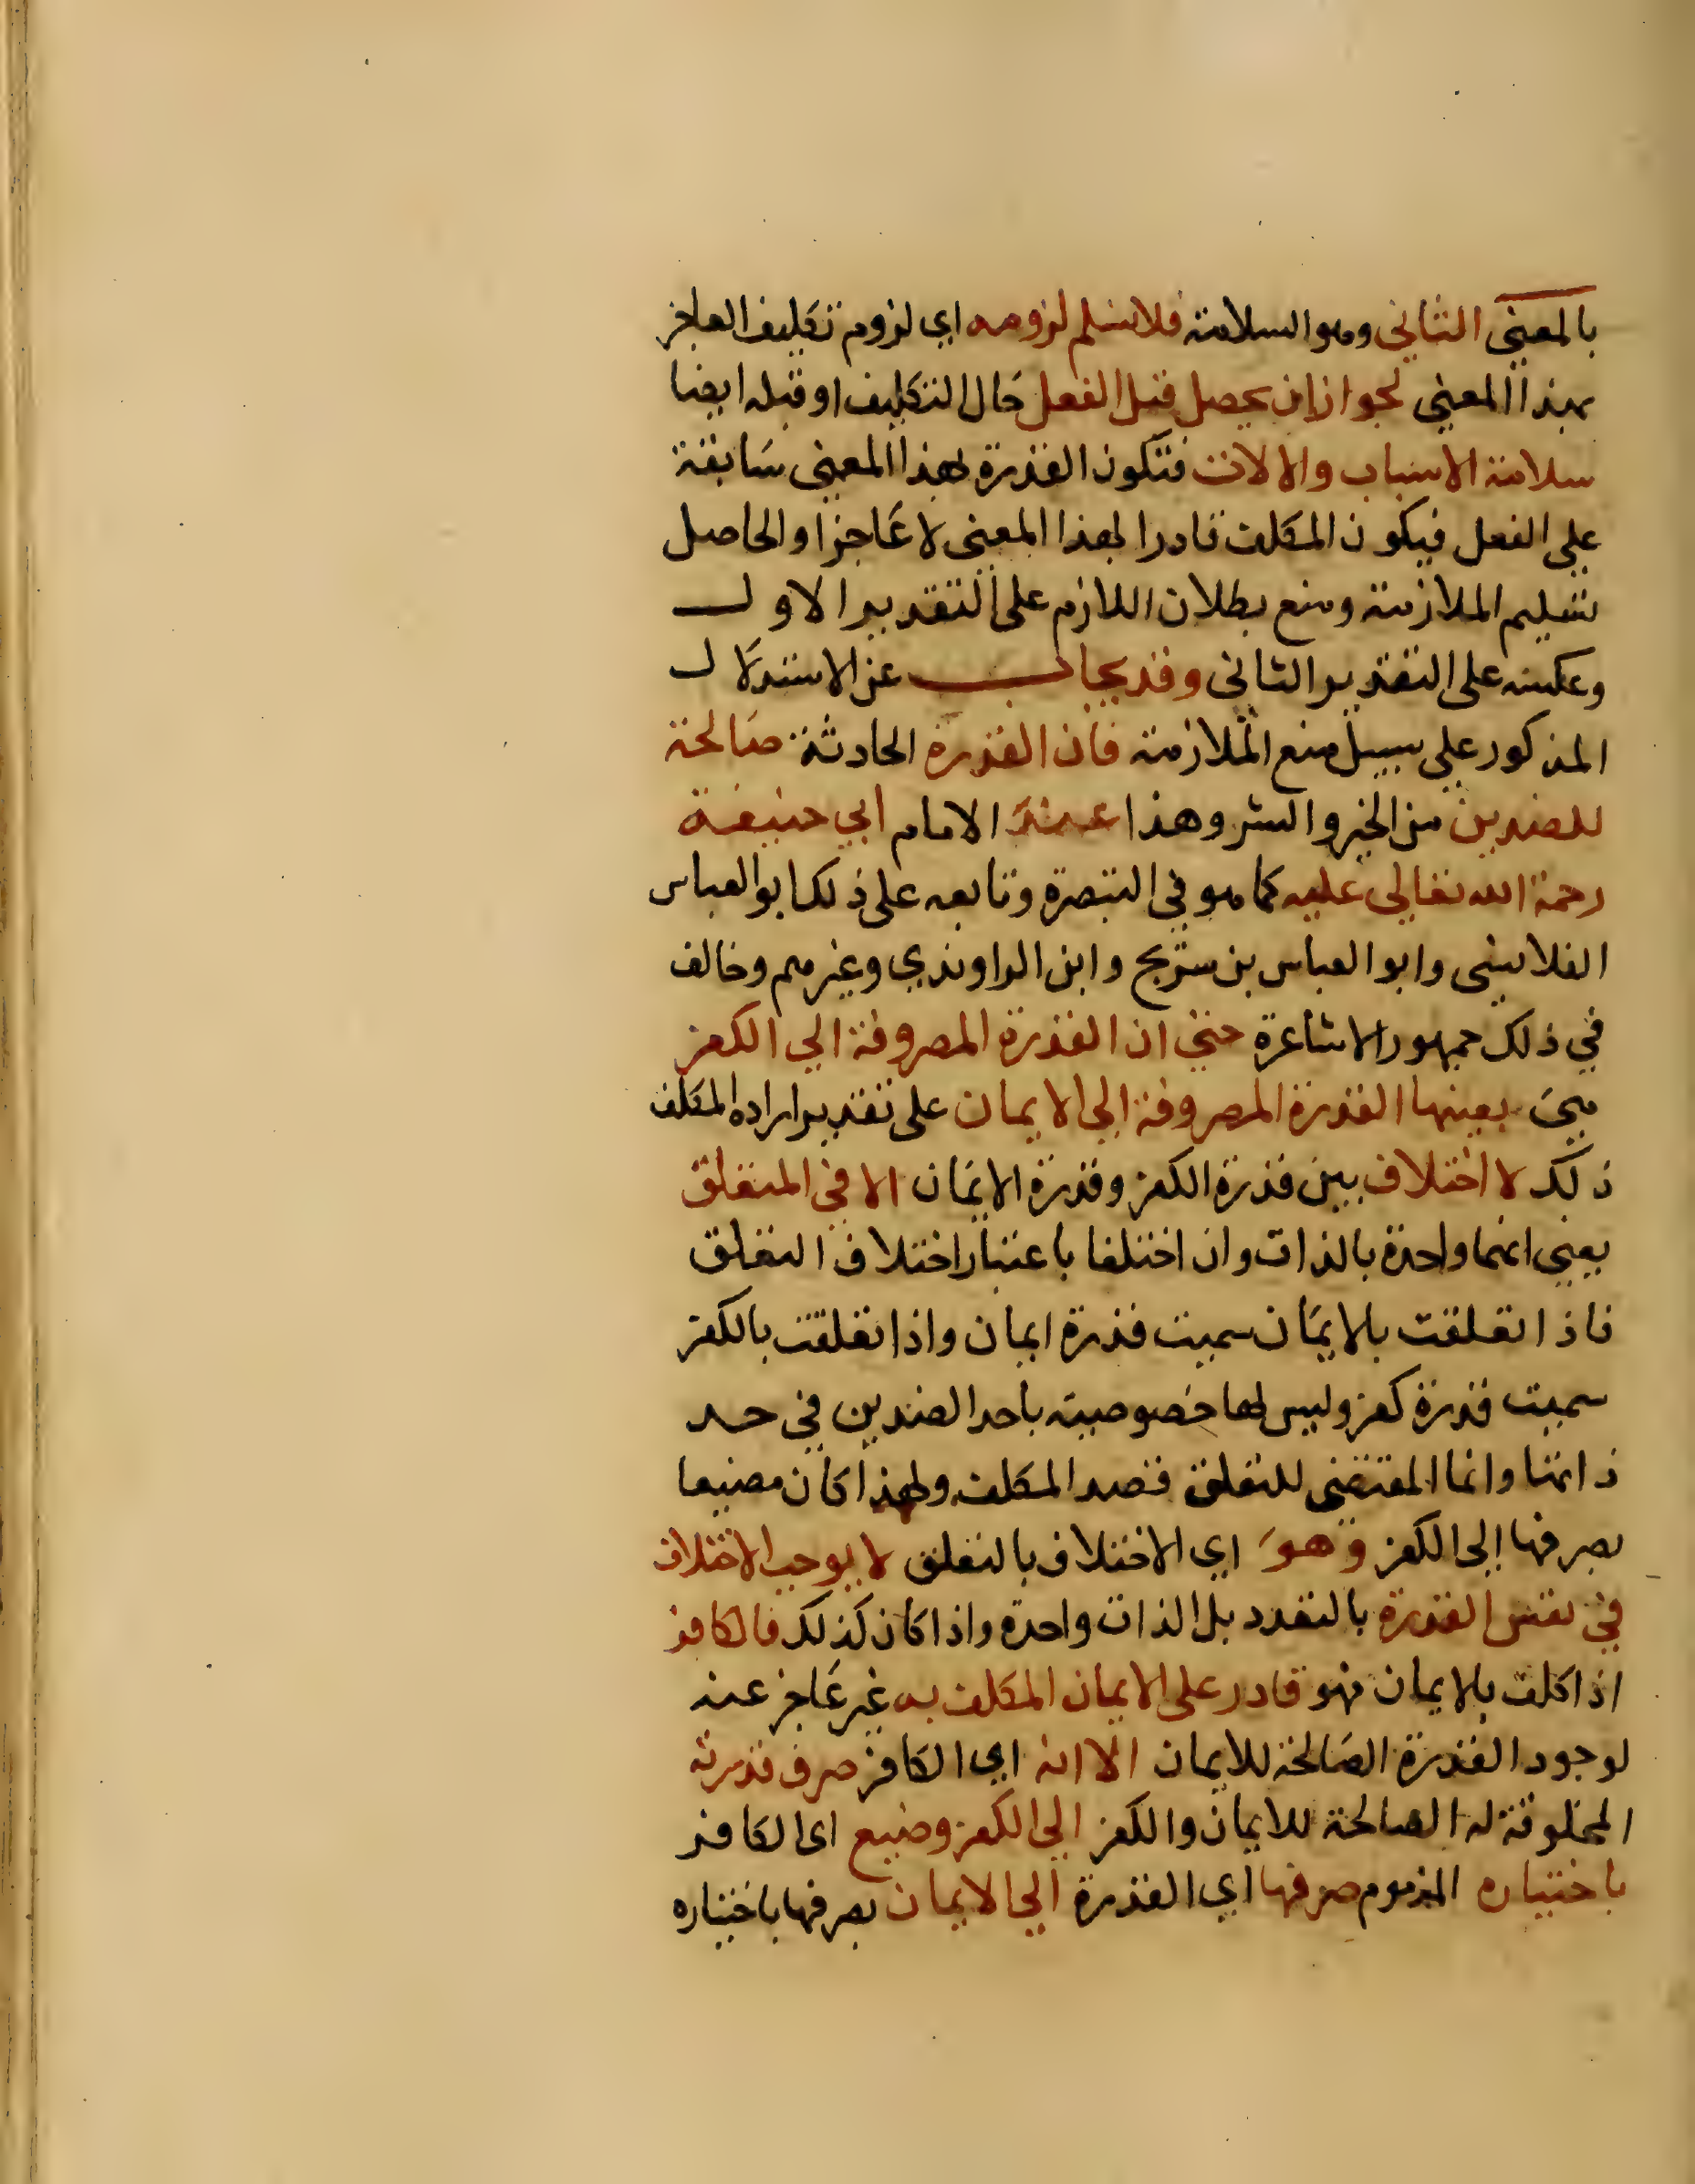 بالمعنى الثاني وهو السلامة فلا نسلم لزومه اي لزوم تكليف العاجز
بهذا المعنى لجواز ان يحصل قبل الفعل حال التكليف او قبله ايضا
سلامة الاسباب والالات فتكون القدرة بهذا المعنى سابقة
على الفعل فيكون المكلف قادرا بهذا المعنى لا عاجزا والحاصل
تسليم الملازمة ومنع بطلان اللازم على التقدير الاول
وعكسه على التقدير الثاني وقد يجاب عن الاستدلال
المذكور على سبيل منع الملازمة فان القدرة الحادثة صالحة
للضدين من الخير والشر وهذا عند الامام ابي حنيفة
رحمة الله تعالى عليه كما هو في التبصرة وتابعه على ذلك ابو العباس
القلانسي وابو العباس بن سريج وابن الراوندي وغيرهم وخالف
في ذلك جمهور الاشاعرة حتى ان القدرة المصروفة الى الكفر
هي بعينها القدرة المصروفة الى الايمان على تقدير اراده المكلف
ذلك لا اختلاف بين قدرة الكفر وقدرة الايمان الا في المتعلق
يعني انهما واحدة بالذات وان اختلفا باعتبار اختلاف التعلق
فاذا تعلقت بالايمان سميت قدرة ايمان واذا تعلقت بالكفر
سميت قدرة كفر وليس لها خصوصية باحد الضدين في حد
ذاتها وانما المقتضى للتعلق قصد المكلف ولهذا كان مضيعا
بصرفها الى الكفر وهو اي الاختلاف بالتعلق لا يوجب الاختلاف
في نفس القدرة بالتعدد بل الذات واحدة واذا كان كذلك فالكافر
اذا كلف بالايمان فهو قادر على الايمان المكلف به غير عاجز عنه
لوجود القدرة الصالحة للايمان الا انه اي الكافر صرف قدرته
المخلوقة له الصالحة للايمان والكفر الى الكفر وضيع اى الكافر
باختياره المذموم صرفها اي القدرة الى الايمان بصرفها باختياره